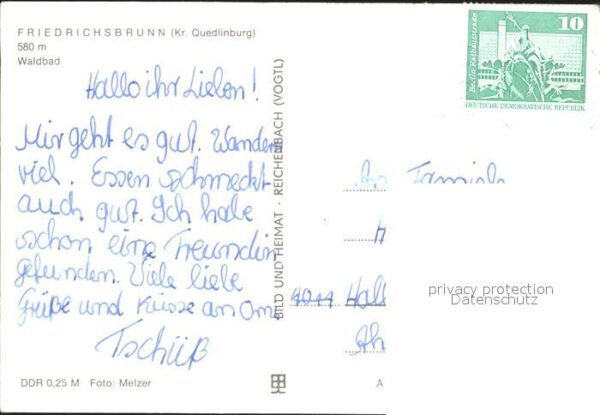 FRIEDRICHSBRUNN (Kr. Quedlinburg)
580 m
Waldbad
Hallo ihr Lieben!
Mir geht es gut. Wandern
viel. Essen schmeckt
auch gut. Ich habe
schon eine Freundin
gefunden. Viele liebe
Grüße und Küsse an Omi
Tschüß
DDR 0,25 M Foto: Melzer
BILD UND HEIMAT · REICHENBACH (VOGTL)
10
Berlin, Rathausstraße
DEUTSCHE DEMOKRATISCHE REPUBLIK
An Familie
H
Hall
Ah
A
privacy protection
Datenschutz